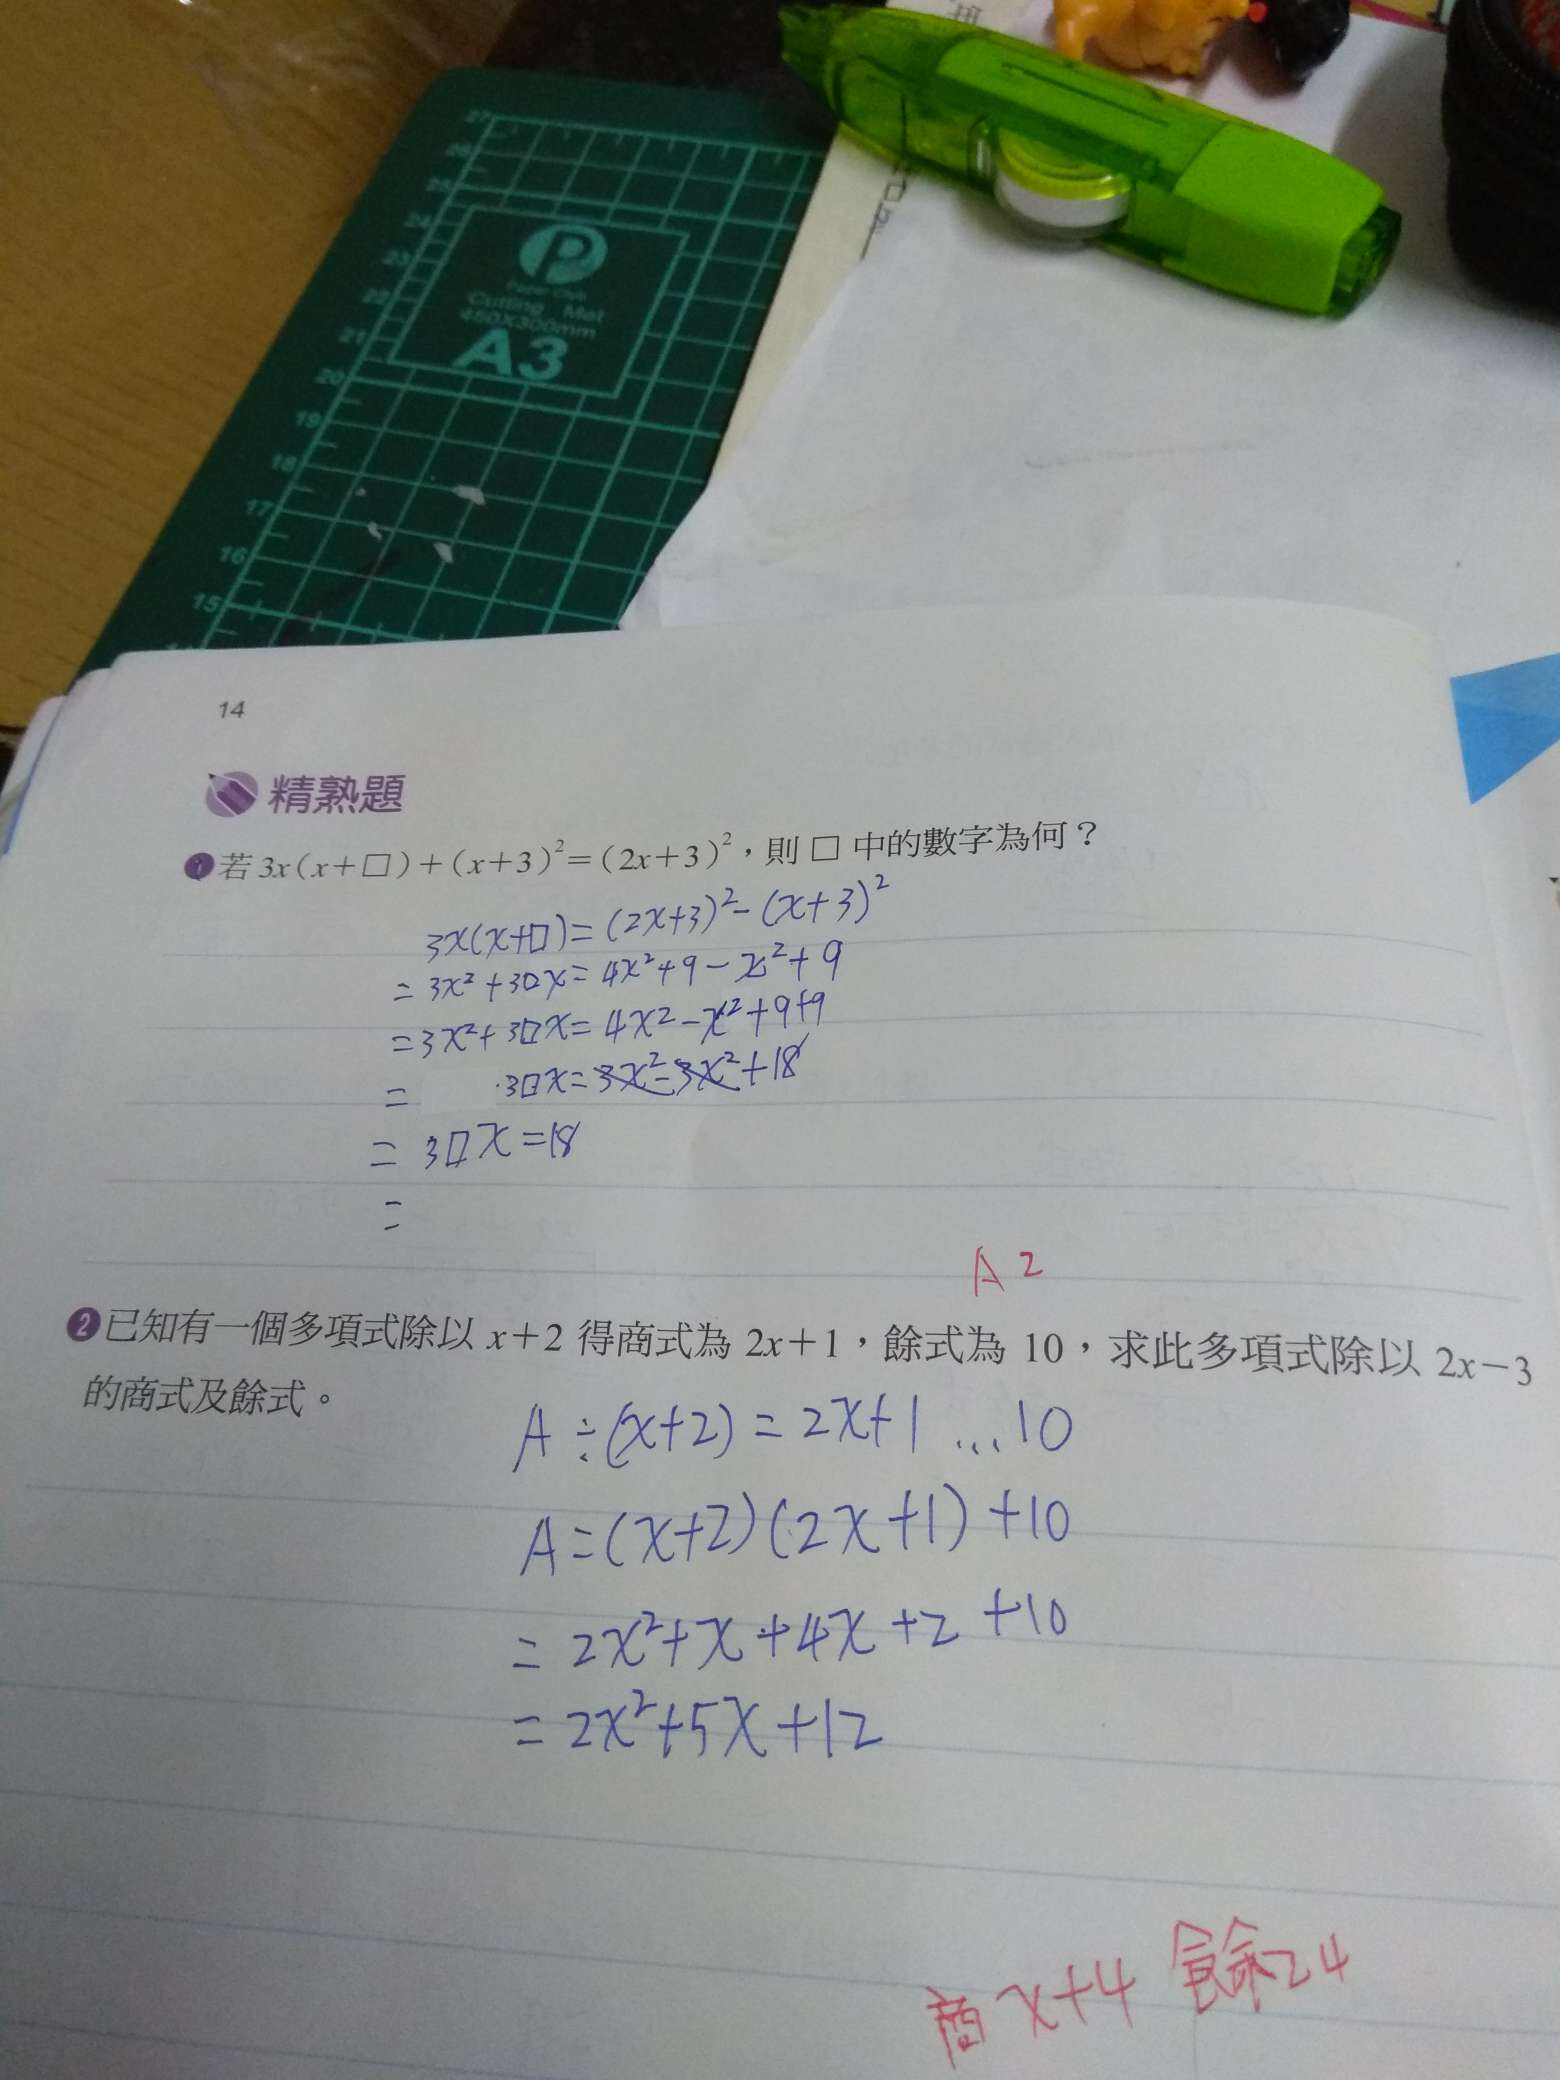 27
26
25
24
23
22
21
20
19
18
17
16
15
P
Cutting Mat
450X300mm
A3
14
精熟題
1 若 3x(x+□)+(x+3)²=(2x+3)²,則 □ 中的數字為何？
3x(x+□)=(2x+3)²-(x+3)²
=3x²+3□x=4x²+9-x²+9
=3x²+3□x=4x²-x²+9+9
= 3□x=3x²-3x²+18
= 3□x=18
=
A 2
2 已知有一個多項式除以 x+2 得商式為 2x+1,餘式為 10,求此多項式除以 2x-3
的商式及餘式。
A÷(x+2)=2x+1 ...10
A=(x+2)(2x+1)+10
=2x²+x+4x+2+10
=2x²+5x+12
商 x+4 餘24